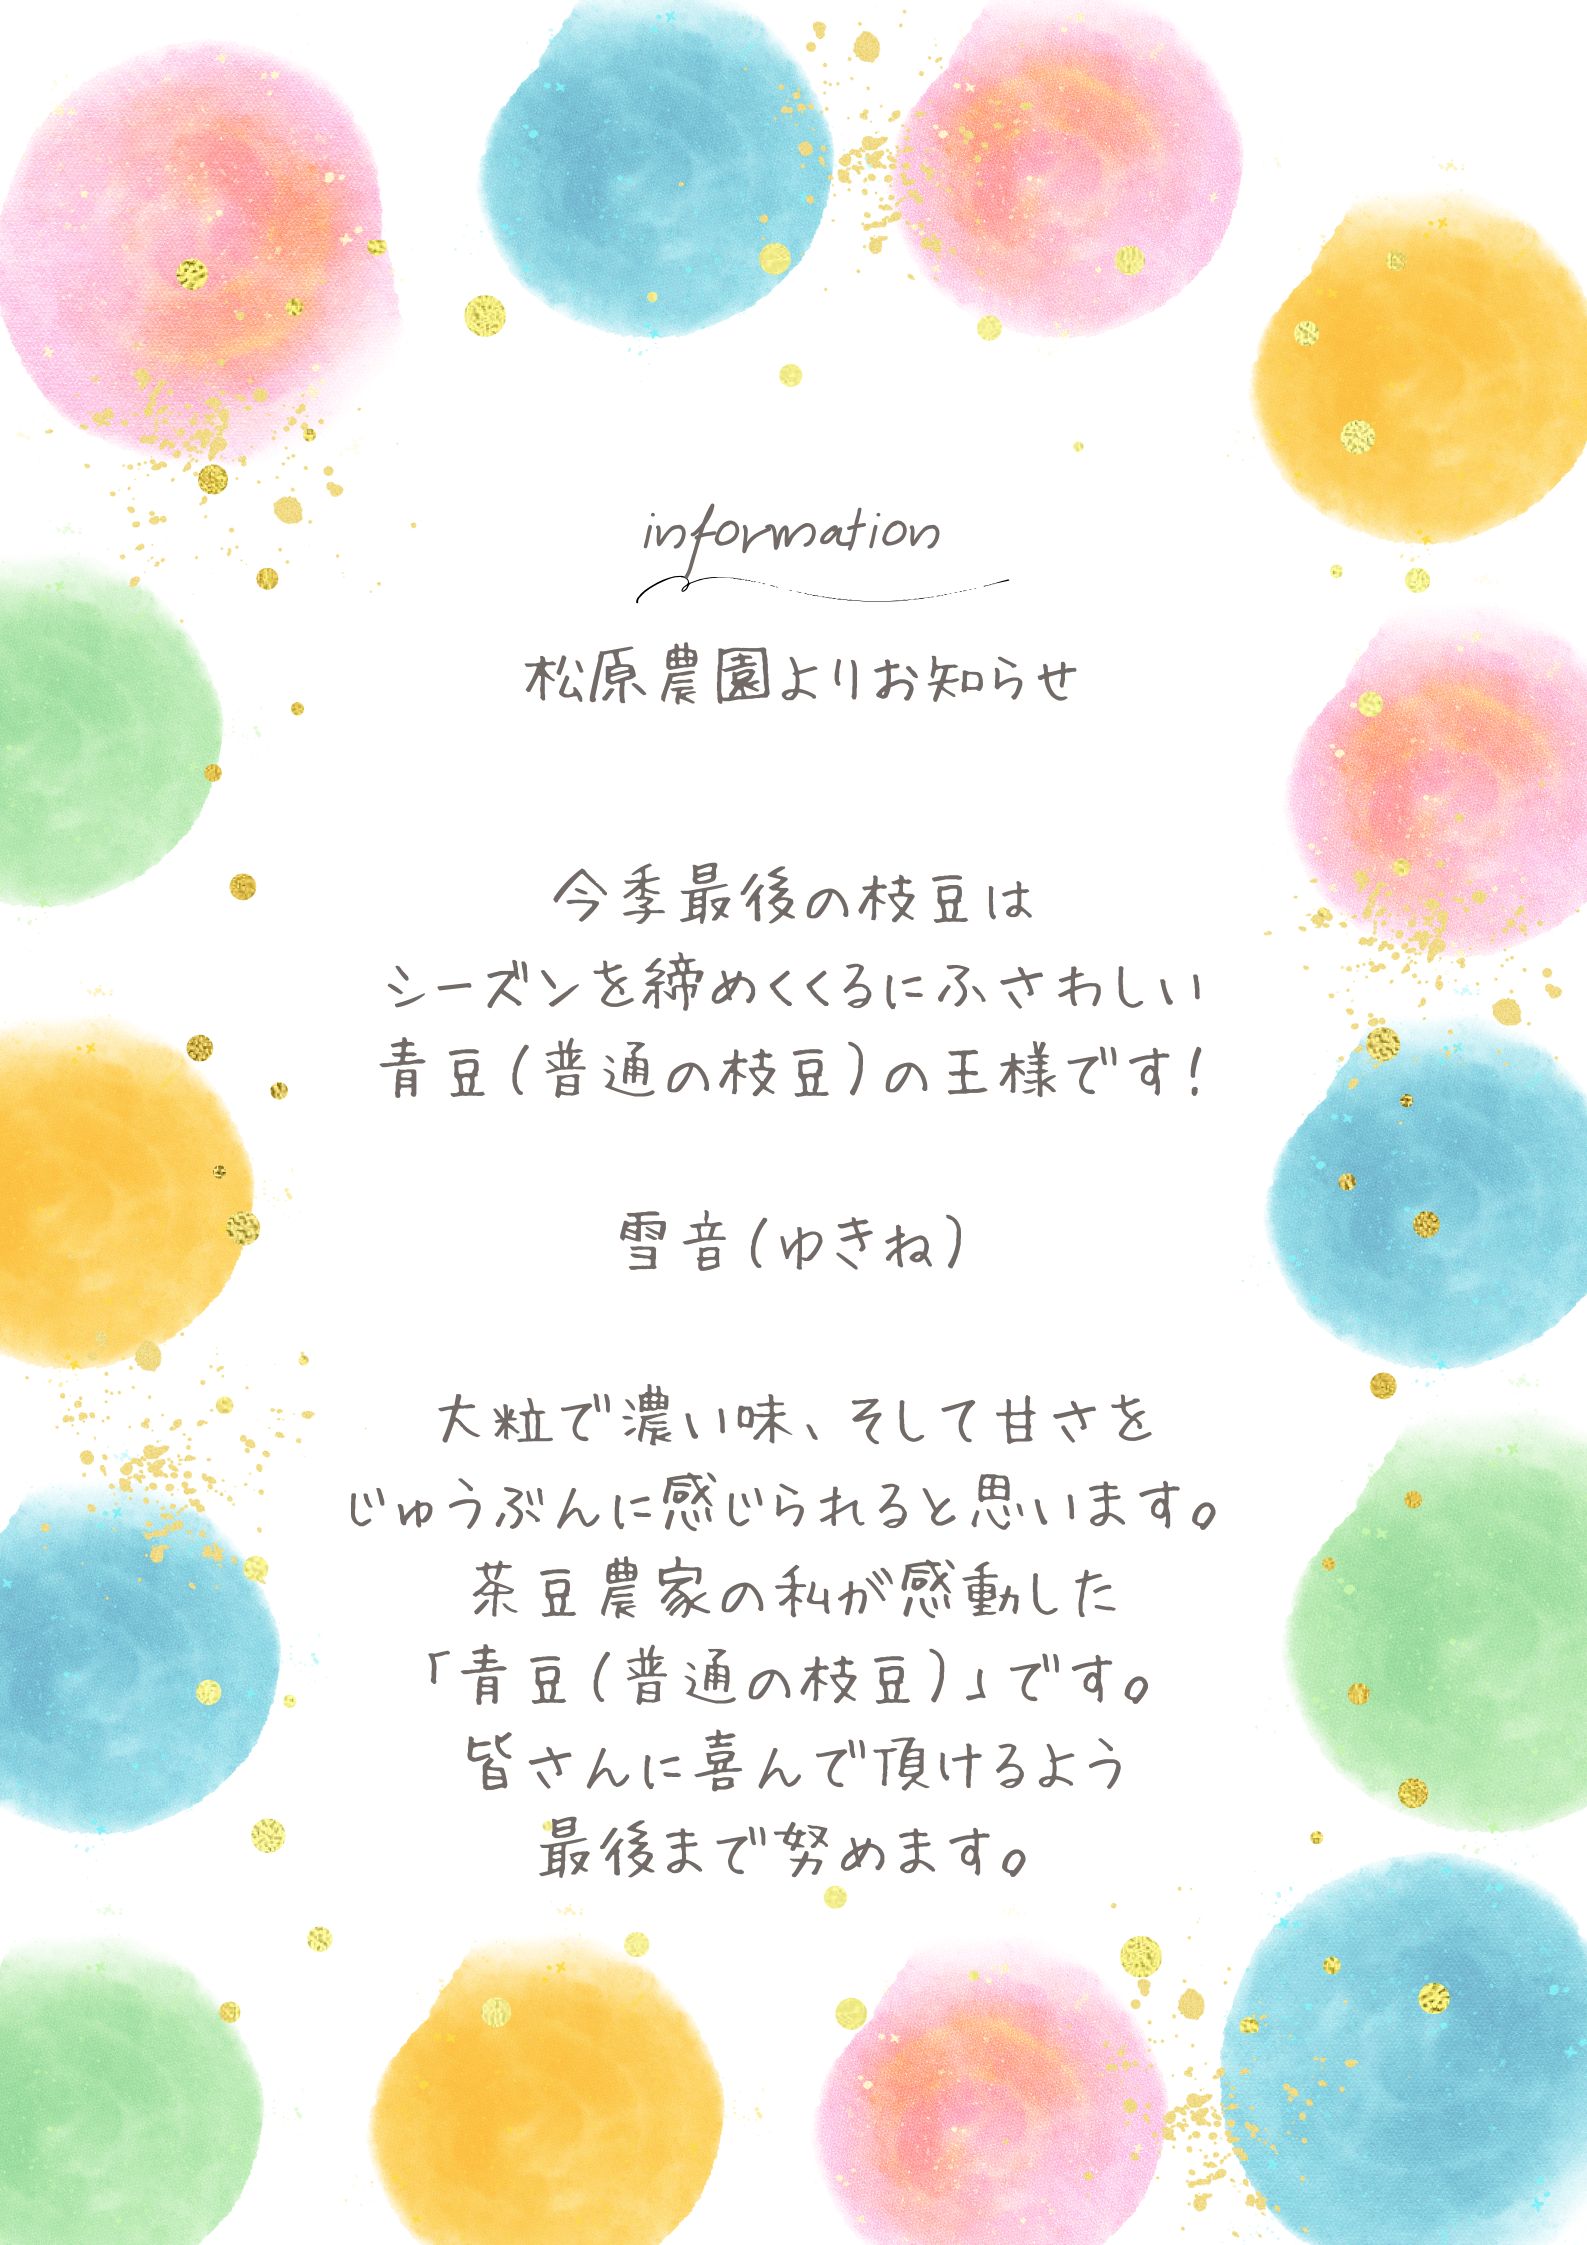 information
松原農園よりお知らせ
今季最後の枝豆は
シーズンを締めくくるにふさわしい
青豆(普通の枝豆)の王様です!
雪音(ゆきね)
大粒で濃い味、そして甘さを
じゅうぶんに感じられると思います。
茶豆農家の私が感動した
「青豆(普通の枝豆)」です。
皆さんに喜んで頂けるよう
最後まで努めます。